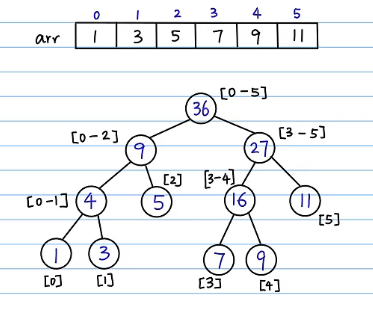 0 1 2 3 4 5
arr 1 3 5 7 9 11
36 [0-5]
[0-2] 9 27 [3-5]
[0-1] 4 [2] 5 [3-4] 16 11 [5]
1 3 7 9
[0] [1] [3] [4]